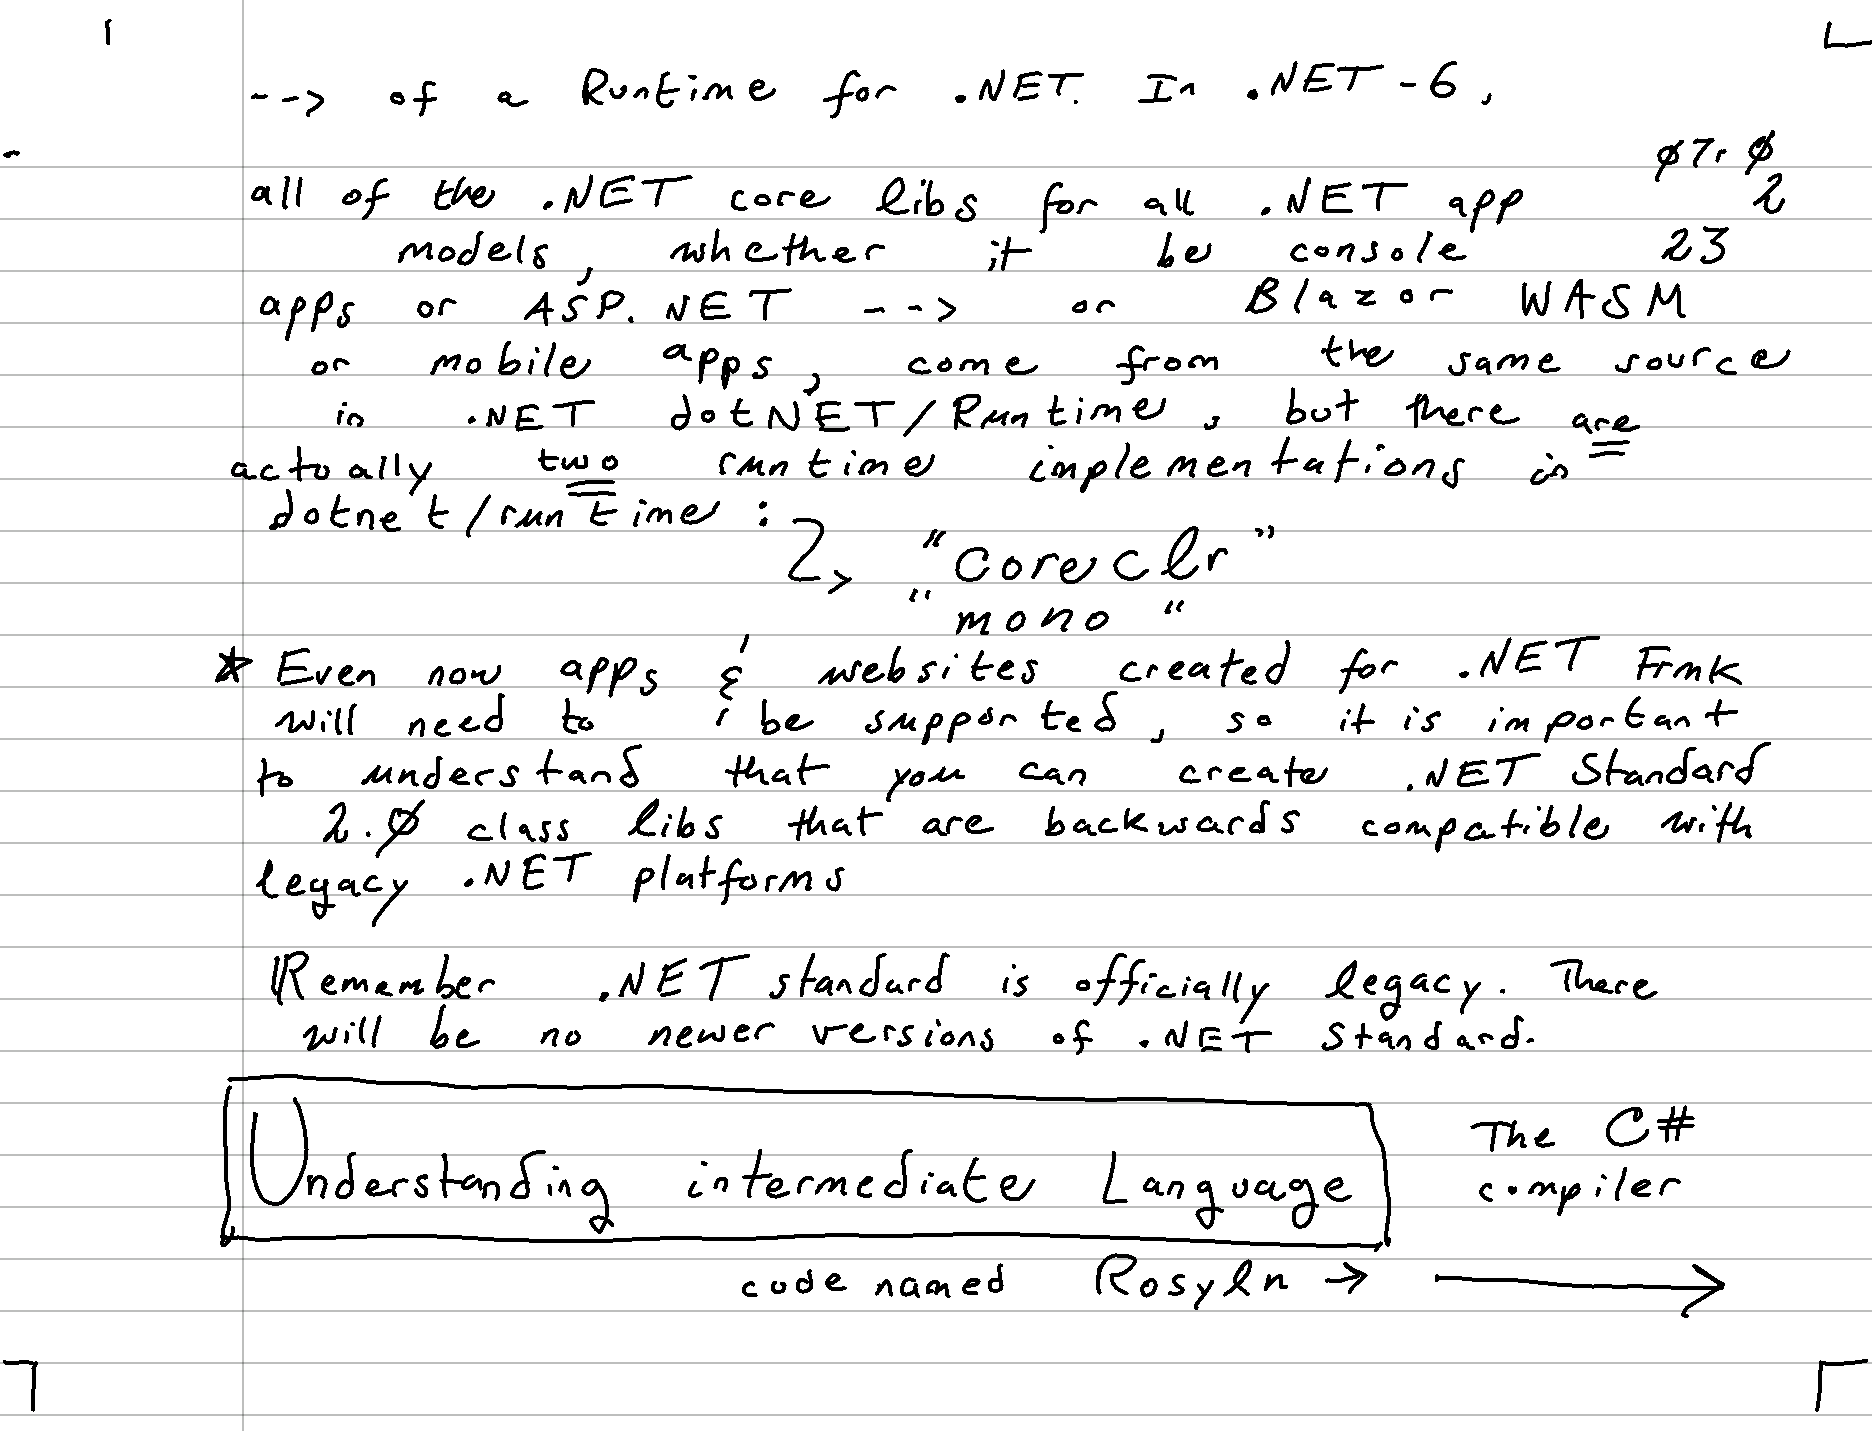 --> of a Runtime for .NET. In .NET-6,
ø7, ø
all of the .NET core libs for all .NET app
2
models, whether it be console
23
apps or ASP.NET --> or Blazor WASM
or mobile apps, come from the same source
in .NET dotNET/Runtime, but there are
actually two runtime implementations in
dotnet/runtime :
"coreclr"
"mono"
* Even now apps & websites created for .NET Frmk
will need to be supported, so it is important
to understand that you can create .NET Standard
2.ø class libs that are backwards compatible with
legacy .NET platforms
Remember .NET standard is officially legacy. There
will be no newer versions of .NET Standard.
Understanding intermediate Language
The C#
compiler
code named Rosyln → →